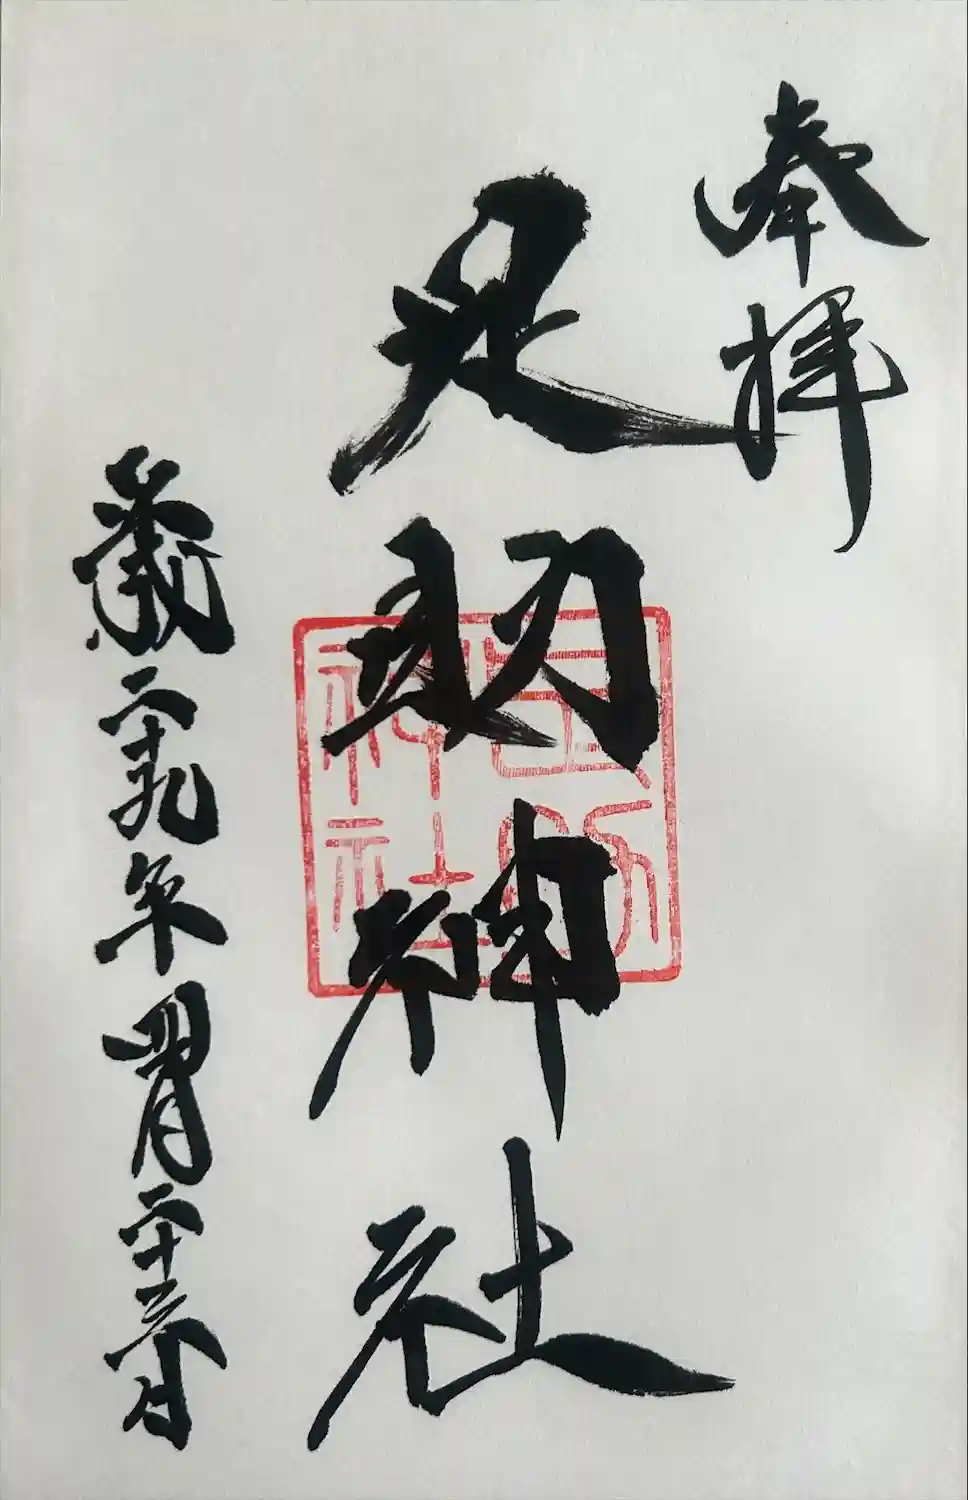 奉拝
足助神社
足助神社
平成二十九年四月二十